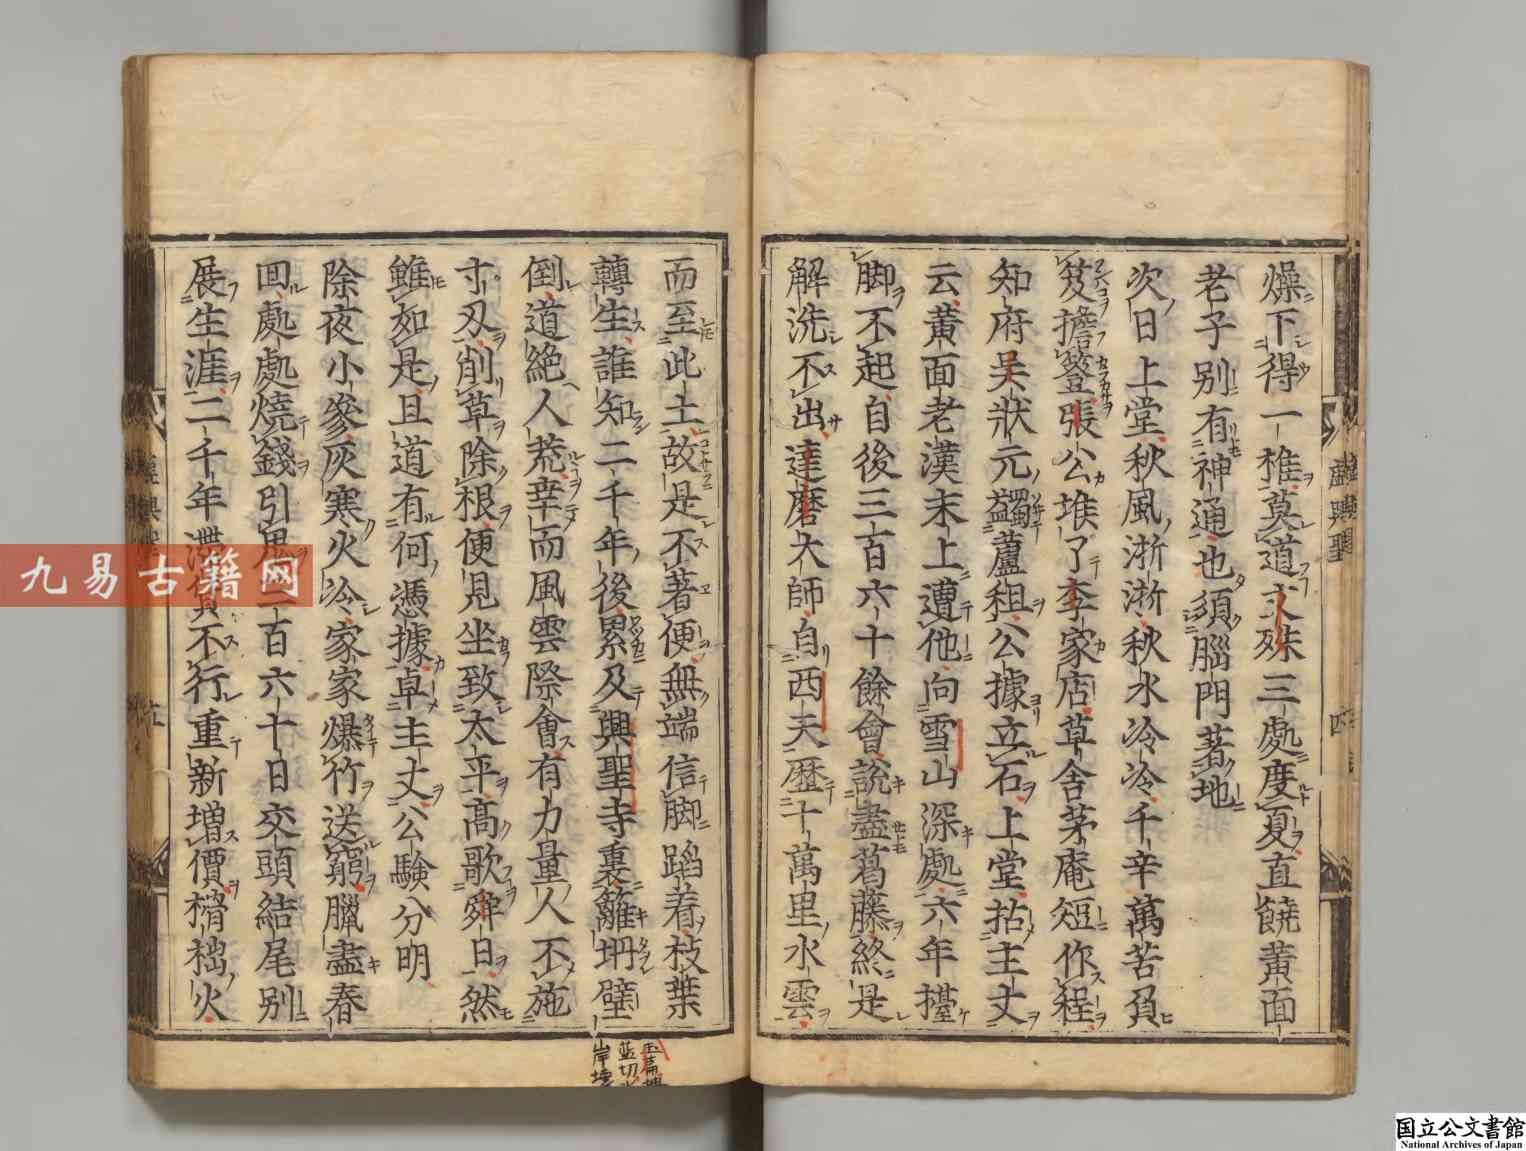 燥下得一椎莫道文殊三處度夏直饒黃面
老子別有神通也須腦門著地
次日上堂秋風淅淅秋水冷冷千辛萬苦負
笈擔簦張公堆了李家店草舍茅庵短作程
知府吳狀元蠲蘆租公據立石上堂拈主丈
云黃面老漢末上遭他向雪山深處六年擡
脚不起自後三百六十餘會說盡葛藤終是
解洗不出達磨大師自西天歷十萬里水雲
而至此土故是不著便無端信脚蹈着枝葉
轉生誰知二千年後累及興聖寺裏籬坍壁
倒道絕人荒幸而風雲際會有力量人不施
寸刃削草除根便見坐致太平高歌舜日然
雖如是且道有何憑據卓主丈公驗分明
除夜小參灰寒火冷家家爆竹送窮臘盡春
回處處燒錢引鬼三百六十日交頭結尾別
展生涯二千年滯貨不行重新增價榾柮火
興聖
四
玉篇
岸
九易古籍网
国立公文書館
National Archives of Japan